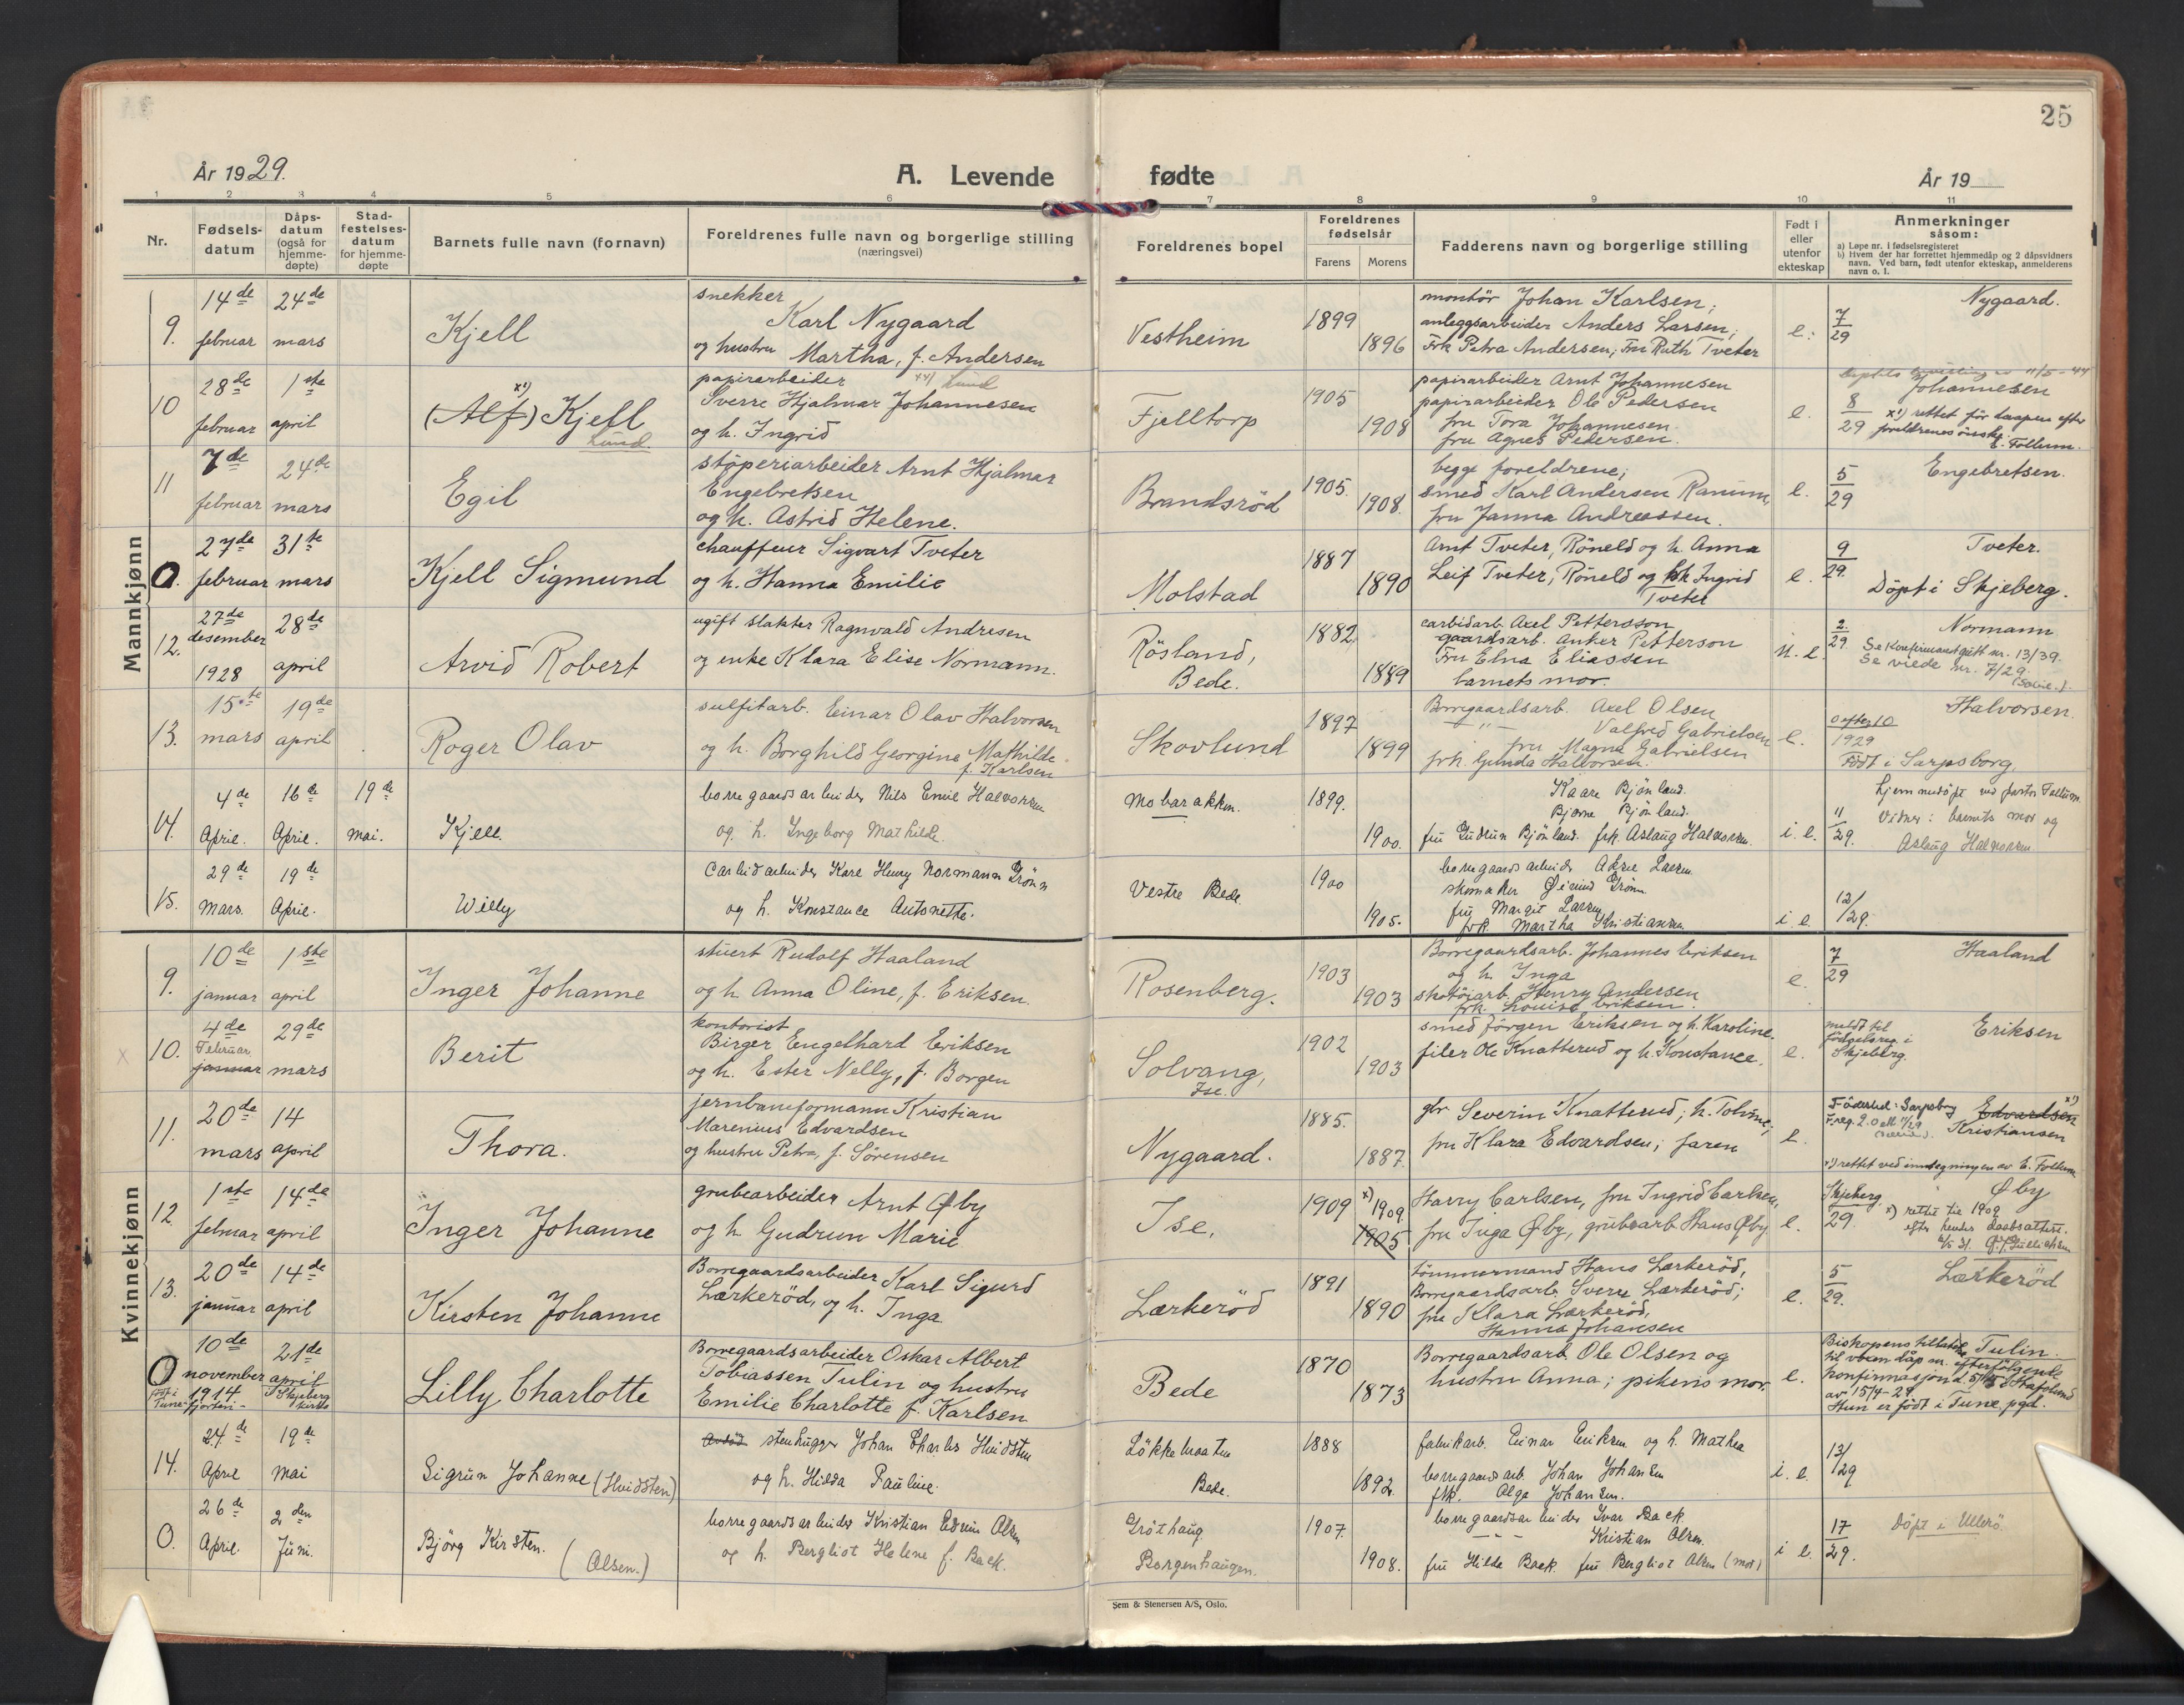 25
År 1929.
A. Levende fødte
År 19
1 2 3 4 5 6 7 8 9 10 11
Nr.
Fødsels-
datum
Dåps-
datum
(også for
hjemme-
døpte)
Stad-
festelses-
datum
for hjemme-
døpte
Barnets fulle navn (fornavn)
Foreldrenes fulle navn og borgerlige stilling
(næringsvei)
Foreldrenes bopel
Foreldrenes
fødselsår
Farens Morens
Fadderens navn og borgerlige stilling
Født i
eller
utenfor
ekteskap
Anmerkninger
såsom:
a) Løpe nr. i fødselsregisteret
b) Hvem der har forrettet hjemmedåp og 2 dåpsvidners
navn. Ved barn, født utenfor ekteskap, anmelderens
navn o. l.
Mannkjønn
9.
14de
februar
24de
mars
Kjell
snekker
Karl Nygaard
og hustru Martha, f. Andersen
Vestheim
1899
1896
montör Johan Karlsen;
anleggsarbeider Anders Larsen;
Frk Petra Andersen; Fru Ruth Tveter
e.
7
29
Nygaard.
10
28de
februar
1ste
april
x1)
(Alf) Kjell
Lund.
papirarbeider xx) Lund
Sverre Hjalmar Johannesen
og h. Ingrid
Fjelltorp
1905
1908
papirarbeider Arnt Johannesen
papirarbeider Ole Pedersen
fru Tora Johannesen
fru Agnes Pedersen.
e.
11/5-44
Johannesen
8
29
x1) rettet før daapen efter
foreldrenes önske
E. Follum.
11
7de
februar
24de
mars
Egil
stöperiarbeider Arnt Hjalmar
Engebretsen
og h. Astrid Helene.
Brandsröd
1905.
1908.
begge foreldrene;
smed Karl Andersen Ranum,
fru Janna Andreassen.
e.
5
29
Engebretsen.
0.
27de
februar
31te
mars
Kjell Sigmund
chauffeur Sigvart Tveter
og h. Hanna Emilie
Molstad
1887
1890
Arnt Tveter, Röneld og h. Anna
Leif Tveter, Röneld og frk Ingrid
Tveter
e.
9
29.
Tveter.
Döpt i Skjeberg.
12.
27de
desember
1928
28de
april
Arvid Robert
ugift slakter Ragnvald Andresen
og enke Klara Elise Normann.
Rösland,
Bede.
1882
1889
carbidarb. Axel Pettersson
gaardsarb. Anker Petterson
Fru Elna Eliassen
barnets mor.
u.e.
2.
29.
Normann
Se Konfirmantgutt nr. 13/39.
Se viede nr. 7/29
13.
15te
mars
19de
april
Roger Olav
sulfitarb. Einar Olav Halvorsen
og h. Borghild Georgine Mathilde
f. Karlsen
Skovlund
1897
1899
Borregaardsarb. Axel Olsen
— " — Valfred Gabrielsen
fru Magna Gabrielsen
frk. Gunda Halvorsen.
e.
0 efter 10
1929
Halvorsen.
Födt i Sarpsborg.
14.
4de
April.
16de
April.
19de
Mai.
Kjell.
borregaardsarbeider Nils Emil Halvorsen
og h. Ingeborg Mathilde.
Mobarakken.
1899.
1900.
Kaare Bjönland.
Bjarne Bjönland.
fru Gudrun Bjönland. frk. Aslaug Halvorsen.
i. e.
11
29.
hjemmedöpt ved pastor Follum.
Vidner: barnets mor og
Aslaug Halvorsen
15.
29de
Mars.
19de
April.
Willy
Carbidarbeider Kare Henry Normann Grönn
og h. Konstance Antonette.
Vestre Bede.
1900
1905.
borregaardsarbeider Larsen.
skomaker Grönn.
fru Margit Larsen
frk Martha Kristiansen.
i e.
12/
/29.
Kvinnekjønn
9.
10de
januar
1ste
april
Inger Johanne
stuert Rudolf Haaland
og h. Anna Oline, f. Eriksen.
Rosenberg.
1903
1903
Borregaardsarb. Johannes Eriksen
og h. Inga
skotöiarb. Henry Andersen
frk. Louise Eriksen.
e.
7
29
Haaland
x
10.
4de
Februar
januar
29de
mars
Berit
kontorist
Birger Engelhard Eriksen
og h. Ester Nelly, f. Borgen
Solvang,
Ise.
1902
1903
smed Jörgen Eriksen og h. Karoline.
filer Ole Knatterud og h. Konstance.
e.
meldt til
födselsreg. i
Skjeberg.
Eriksen
11.
20de
mars
14
april
Thora.
jernbaneformann Kristian
Marenius Edvardsen
og hustru Petra, f. Sörensen
Nygaard.
1885.
1887.
gbr Severin Knatterud; h. Toline;
fru Klara Edvardsen; faren
e.
Födested: Sarpsborg
x)
Edvardsen
Kristiansen
x) rettet ved inntegningen av E. Follum
12.
1ste
februar
14de
april
Inger Johanne
grubearbeider Arnt Øby
og h. Gudrun Marie
Ise.
1909
x) 1909.
1905
Harry Carlsen, fru Ingrid Carlsen,
fru Inga Øby, grubearb Hans Øby
e.
Skjeberg
29.
Øby
x) rettet til 1909
efter hendes daabsattest.
13.
20de
januar
14de
april
Kirsten Johanne
Borregaardsarbeider Karl Sigurd
Lærkeröd, og h. Inga
Lærkeröd
1891
1890
tömmermand Hans Lærkeröd,
Borregaardsarb. Sverre Lærkeröd;
fru Klara Lærkeröd,
Hanna Johansen
e.
5
29.
Lærkeröd
0
10de
november
1914
fjorten-
födt i
Tune
21de
april
i Skjeberg
kirke
Lilly Charlotte
Borregaardsarbeider Oskar Albert
Tobiassen Tulin og hustru
Emilie Charlotte f. Karlsen
Bede
1870
1873
Borregaardsarb. Ole Olsen og
hustru Anna; pikens mor.
e.
Biskopens tillatelse Tulin.
til voksen dåp m. efterfölgende
konfirmasjon
av 15/4-29.
Hun er födt i Tune pgd.
14.
24de
April
19de
Mai
Sigrun Johanne (Hvidsten)
Avdöd stenhugger Johan Charles Hvidsten
og h. Hilda Pauline.
Lökkemoaten
Bede.
1888
1892.
fabrikarb. Einar Eriksen og h. Mathea
borregaardsarb. Johan Johansen
frk. Olga Johansen.
i. e.
13/
/29
0.
26de
April.
2den
Juni.
Björg Kirsten.
(Olsen.)
borregaardsarbeider Kristian Edvin Olsen
og h. Bergliot Helene f. Back.
Gröthaug
Borgenhaugen.
1907.
1908.
borregaardsarbeider Ivar Back.
— " — Kristian Olsen.
fru Hilda Back. fru Bergliot Olsen (mor)
i e.
17
29.
Döpt i Ullerö.
Sem & Stenersen A/S, Oslo.